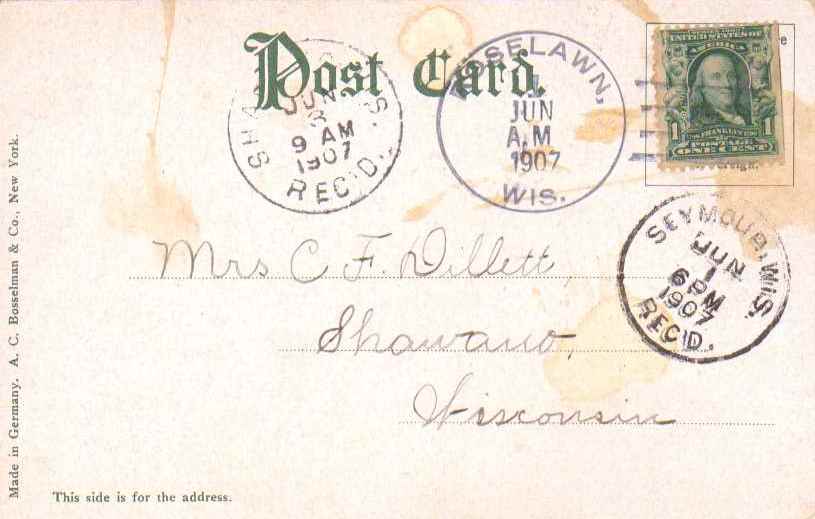 Post Card.
JUN
3
9 AM
1907
REC'D.
ROSELAWN,
1
JUN
A.M.
1907
WIS.
UNITED STATES OF
AMERICA
1 FRANKLIN 1
POSTAGE
ONE CENT
SEYMOUR, WIS.
JUN
1
6 PM
1907
REC'D.
Mrs C. F. Dillett,
Shawano,
Wisconsin
Made in Germany. A. C. Bosselman & Co., New York.
This side is for the address.